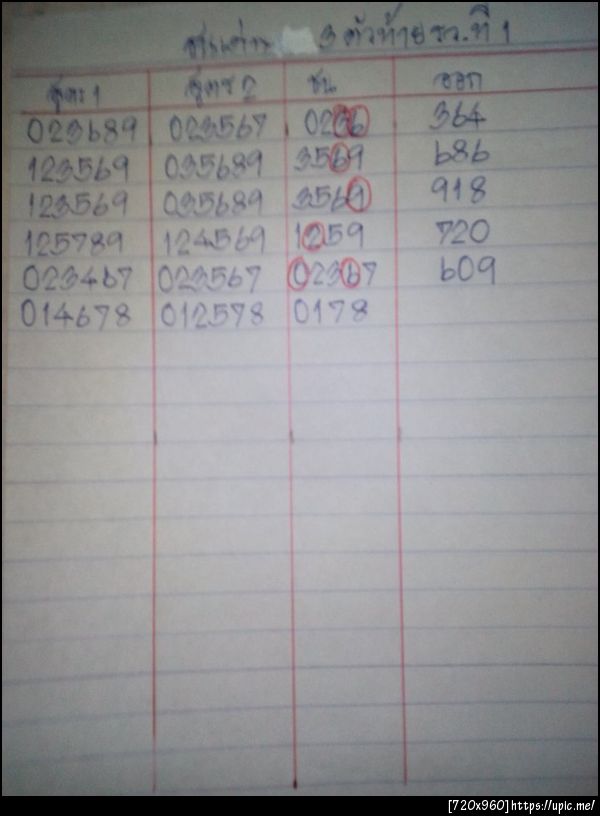 3 ตัวท้าย รว.ที่ 1
สูตร 1 สูตร 2 ชน ออก
023689 023567 0236 364
123569 035689 3569 686
123569 035689 3569 918
125789 124569 1259 720
023467 023567 02367 609
014678 012578 0178
[720x960]https://upic.me/